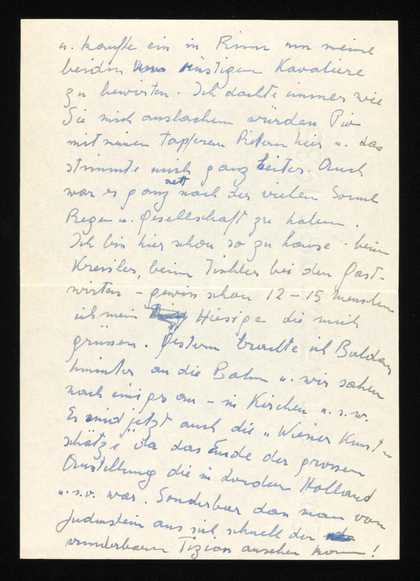 u. kaufte ein in Rinn um meine
beiden einstigen Kavaliere
zu bewirten. Ich dachte immer wie
Sie mich auslachen würden
mit meinen tapferen hier u. das
stimmte mich ganz heiter. Auch
war es ganz nett nach der vielen Sonne
Regen u. Gesellschaft zu haben.
Ich bin hier schon so zu hause. beim
Kressler, beim Tischler bei den Gast-
wirten – gewiss schon 12 – 15 Menschen
ich mein Hiesige die mich
grüssen. Gestern brachte ich
hinunter an die Bahn u. wir sahen
noch einiges an – in Kirchen u.s.w.
Es sind jetzt auch die „Wiener Kunst-
schätze da das Ende der grossen
Ausstellung die in London Holland
u.s.w. war. Sonderbar dan man von
Judenstein aus sich schnell den
wunderbaren Tizian ansehen kann!